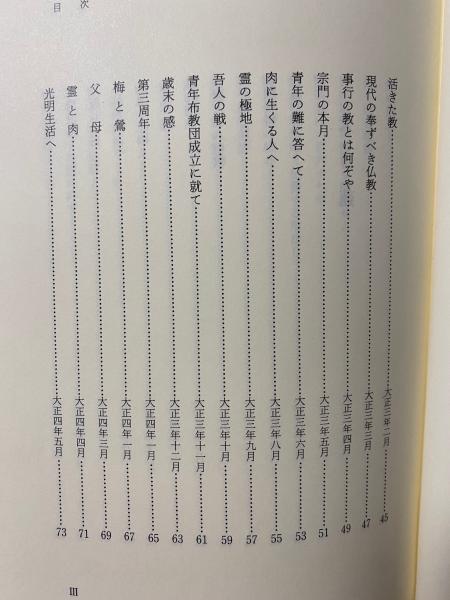 活きた教……大正三年二月……45
現代の奉ずべき仏教……大正三年三月……47
事行の教とは何ぞや……大正三年四月……49
宗門の本月……大正三年五月……51
青年の難に答へて……大正三年六月……53
肉に生くる人へ……大正三年八月……55
霊の極地……大正三年九月……57
吾人の戦……大正三年十月……59
青年布教団成立に就て……大正三年十一月……61
歳末の感……大正三年十二月……63
第三周年……大正四年一月……65
梅と鶯……大正四年一月……67
父 母……大正四年三月……69
霊と肉……大正四年四月……71
光明生活へ……大正四年五月……73
目 次
III